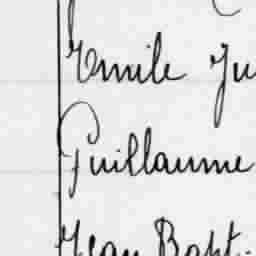 Emile Ju
Guillaume
Jean Bapt.